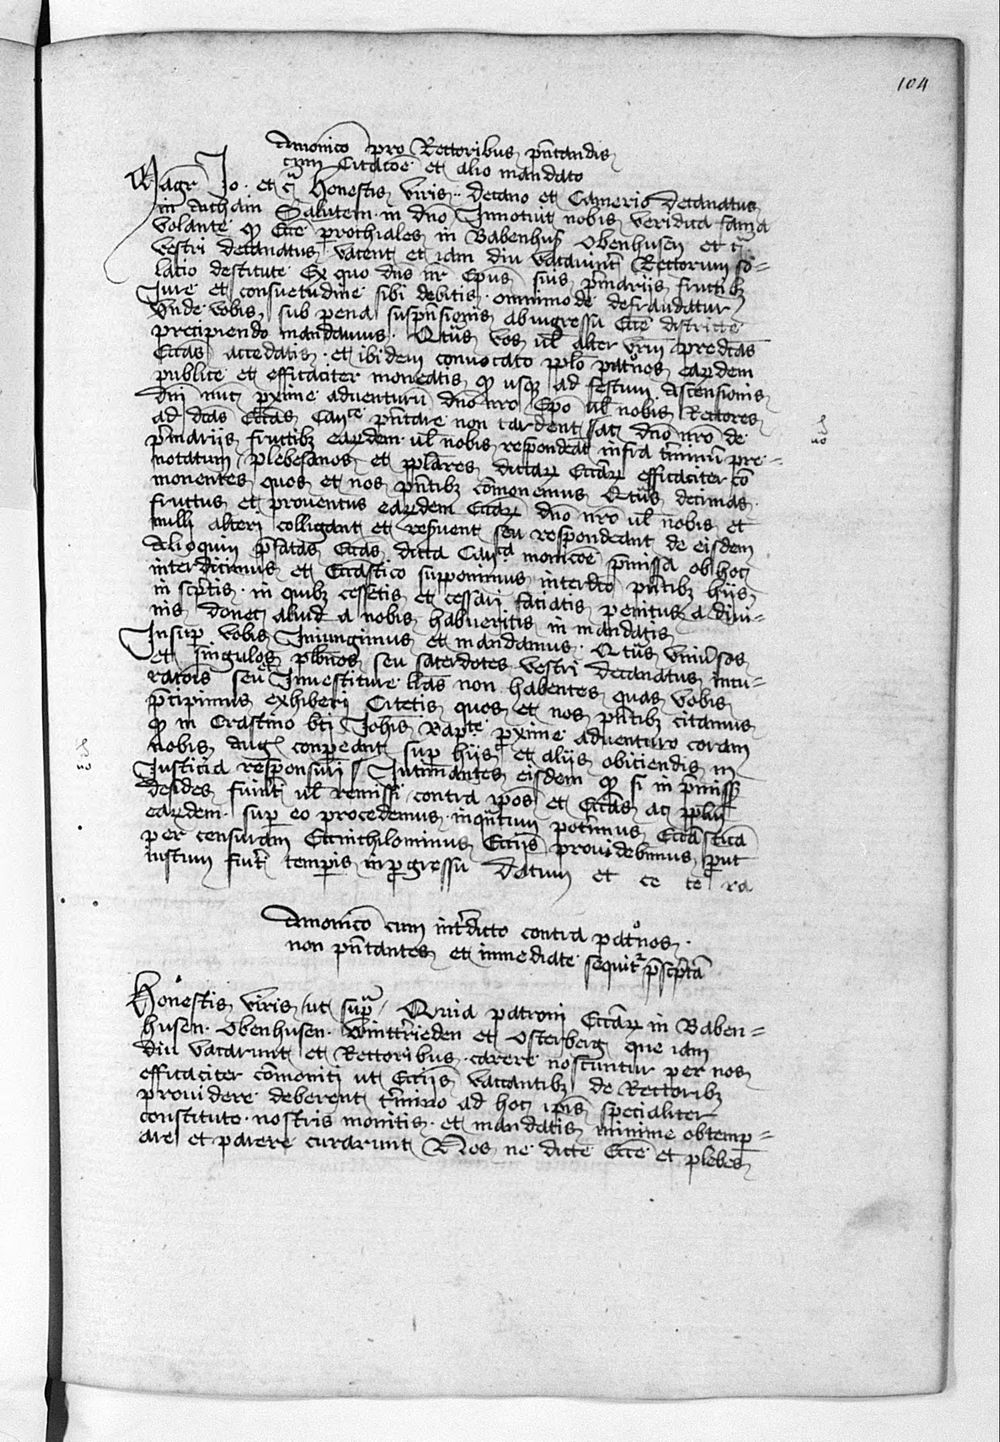 104
Amonico pro Rectoribus pntandis
cum Citacoe et alio mandato
Magr Jo. et c Honestis viris Decano et Camerio decanatus
in Salutem in dno Innotuit nobis veridica fama
volante q Ecce prochiales in Babenhus Obenhusen et c
vestri decanatus vacent et iam diu vacavint Rectorum so=
lacio destitute Ex quo dns nr Epus suis pmariis fructibz
Jure et consuetudine sibi debitis omnimode defraudatur
Vnde vobis sub pena suspnsionis ab ingressu Ecce districte
precipiendo mandamus Qtus vos ul alter vrm predcas
Eccas accedatis et ibidem convocato pplo patnos eardem
publice et efficaciter moneatis q usqz ad festum Ascensionis
Dni nuc pxime adventuru dno nro Epo ul nobis Rectores
ad dcas Eccas Canice pntare non tardent sac dno nro de
pmariis fructibz eardem ul nobis respondeat infra tminu pre=
notatum plebesanos et pplares dictar Eccar efficaciter co
monentes quos et nos pntibz comonemus Qtus decimas
fructus et proventus eardem Eccar dno nro ul nobis et
nulli alteri colligant et resvent seu respondeant de eisdem
Alioquin pfatas Eccas dicta Canca monicoe pmissa ob hoc
interdicimus et Eccastico supponimus interdco pntibz hiis
in scptis in quibz cessetis et cessari faciatis penitus a divi=
nis donec aliud a nobis habueritis in mandatis
Insup vobis Iniungimus et mandamus Qtus universos
et singulos plbnos seu sacerdotes vestri decanatus incu=
ratois seu Investiture lras non habentes quas vobis
pcipimus exhiberi Citetis quos et nos pntibz citamus
q in Crastino bti Johis Bapte pxime adventuro coram
nobis aug conpeant sup hiis et aliis obiciendis in
Justicia responsuri Intimantes eisdem q si in pmissis
desides fuint ul remissi contra ipos et Eccas ac pplm
eardem sup eo procedemus inquntum potimus Eccastica
per censuram Eccnichilominus Ecciis providebimus put
iustum fiut tempis in pgressu Datum et ce te ra
Amonico cum intdicto contra patnos
non pntantes et inmediate sequitr pscpta
Honestis viris ut supa Quia patroni Eccar in Baben=
husen Obenhusen Winttrieden et Osterberg que iam
diu vacarunt et Rectoribus carere noscuntur per nos
efficaciter comoniti ut Ecciis vacantibz de Rectoribz
providere deberent tmino ad hoc ipis specialiter
constituto nostris monitis et mandatis minime obtemp=
are et parere curarunt Nos ne dicte Ecce et plebes